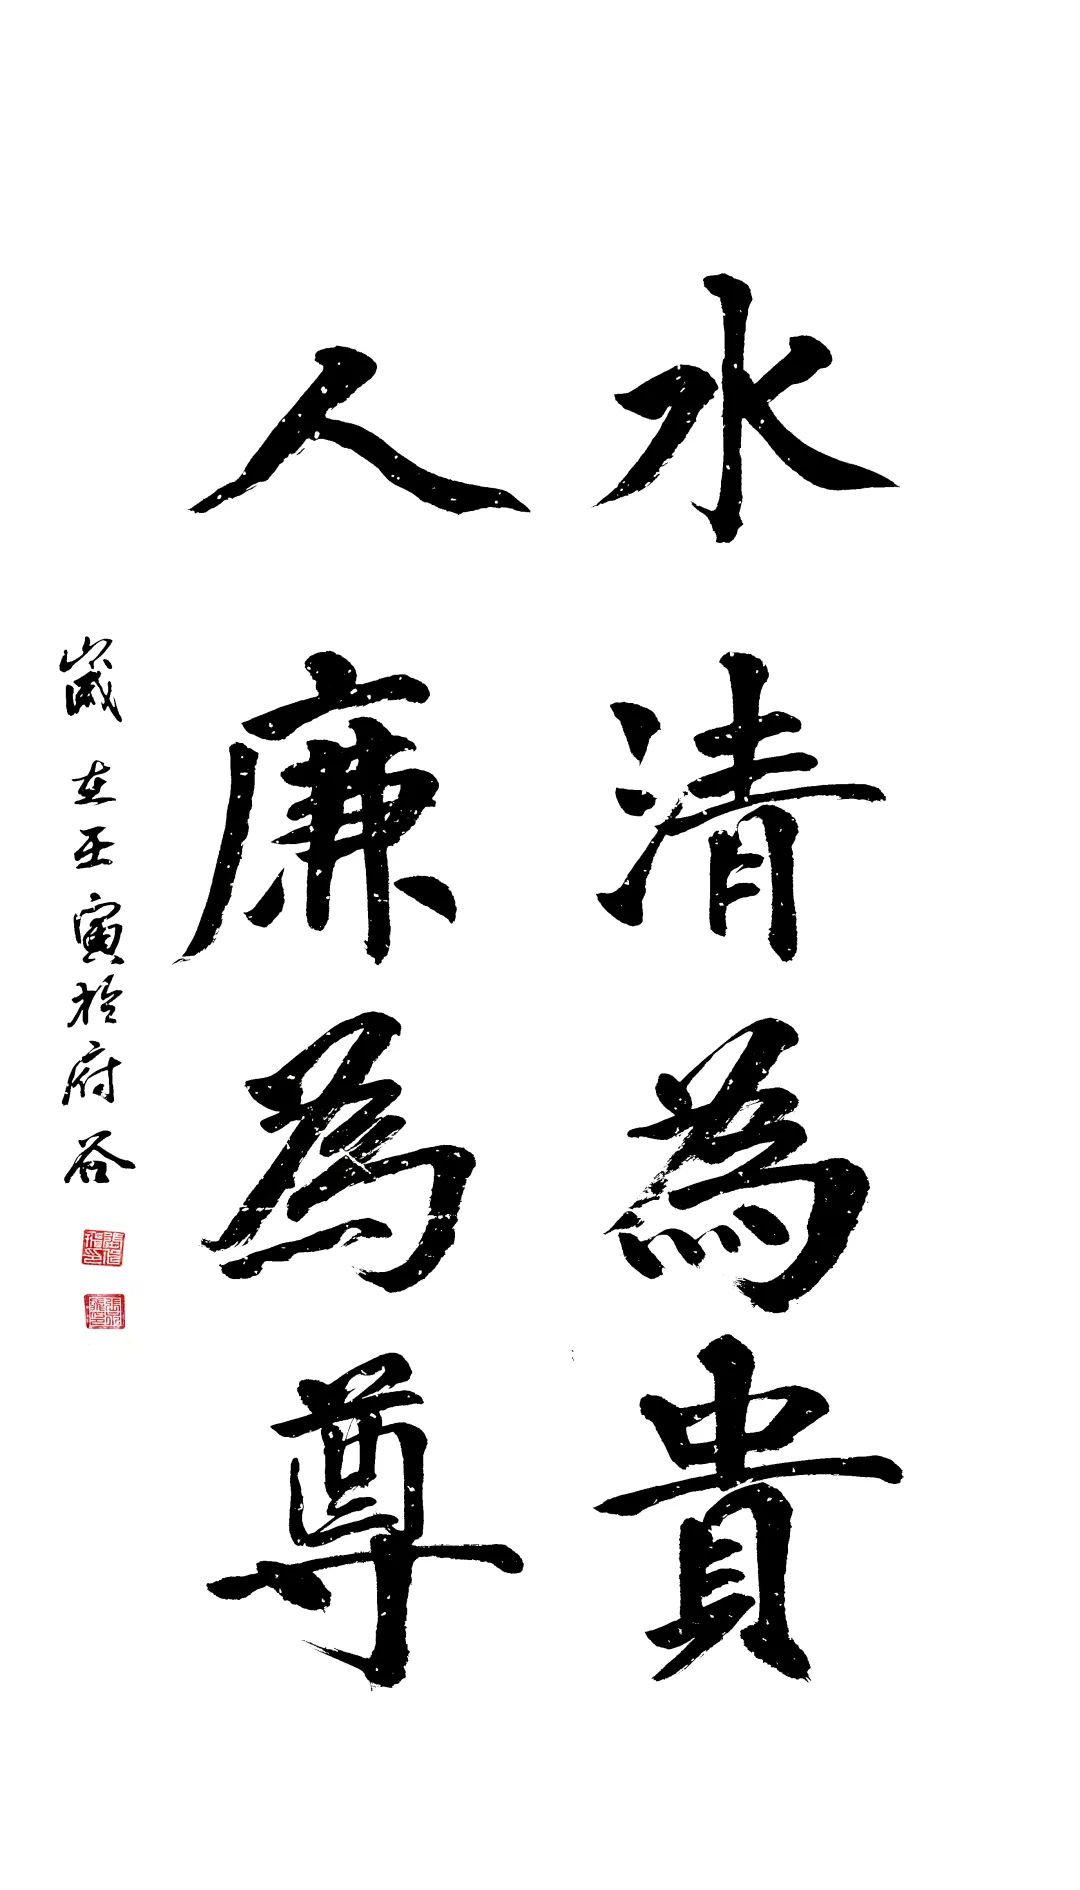 水清為貴
人廉為尊
歲在壬寅於府谷